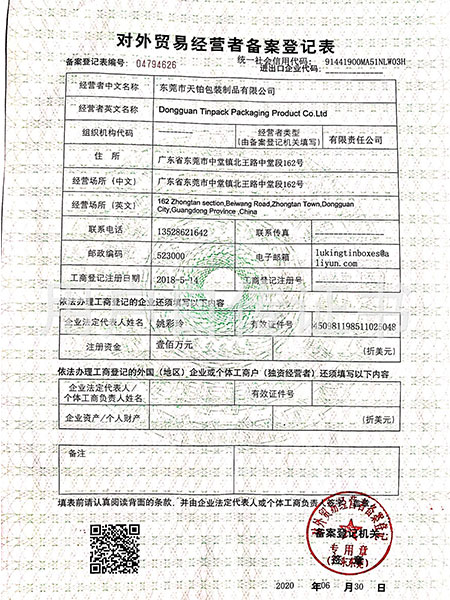 对外贸易经营者备案登记表
统一社会信用代码： 91441900MA51NLW03H
备案登记表编号： 04794626
进出口企业代码：
经营者中文名称 东莞市天铂包装制品有限公司
经营者英文名称 Dongguan Tinpack Packaging Product Co.Ltd
组织机构代码 经营者类型
(由备案登记机关填写) 有限责任公司
住 所 广东省东莞市中堂镇北王路中堂段162号
经营场所（中文） 广东省东莞市中堂镇北王路中堂段162号
经营场所（英文） 162 Zhongtan section,Beiwang Road,Zhongtan Town,Dongguan
City,Guangdong Province ,China
联系电话 13528621642 联系传真
邮政编码 523000 电子邮箱 lukingtinboxes@a
liyun.com
工商登记注册日期 2018-5-14 工商登记注册号
依法办理工商登记的企业还须填写以下内容
企业法定代表人姓名 姚彩玲 有效证件号 450981198511025048
注册资金 壹佰万元 (折美元)
依法办理工商登记的外国（地区）企业或个体工商户（独资经营者）还须填写以下内容
企业法定代表人/
个体工商负责人姓名 有效证件号
企业资产/个人财产 (折美元)
备注
填表前请认真阅读背面的条款，并由企业法定代表人或个体工商负责人签字、盖章
对外贸易经营者备案登记
备案登记机关
专用章
（签 章）
2020 年 06 月 30 日